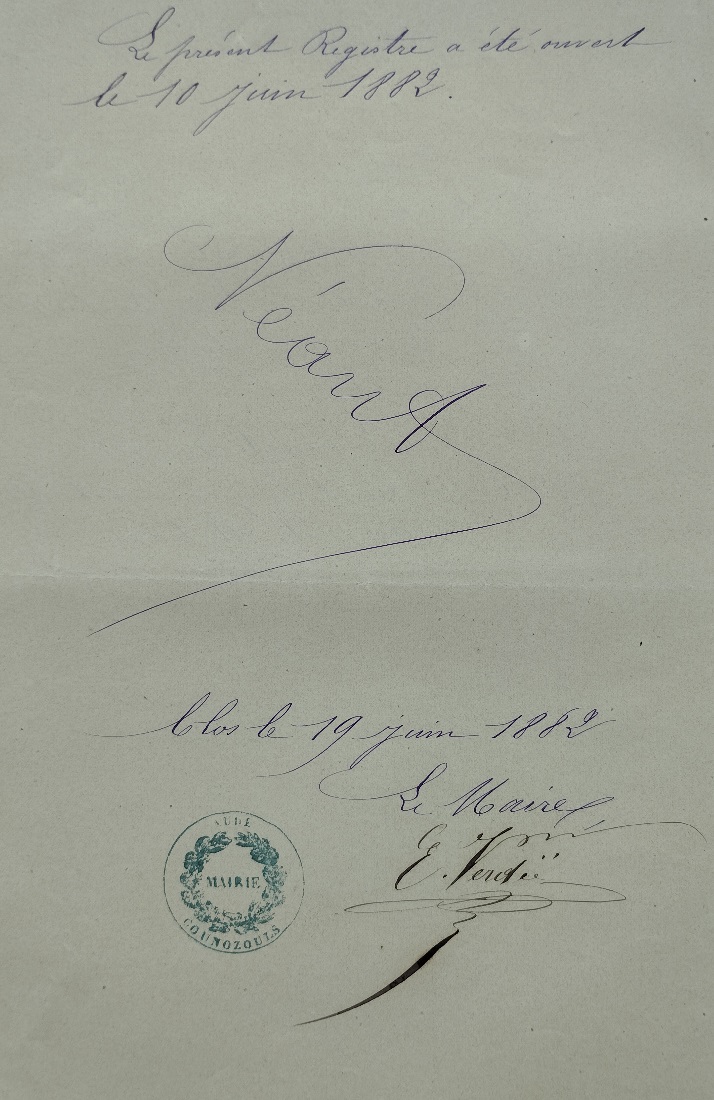 Le présent Registre a été ouvert
le 10 juin 1882.
Néant
Clos le 19 juin 1882
Le Maire
E. Verdié
AUDE
MAIRIE
COUNOZOULS